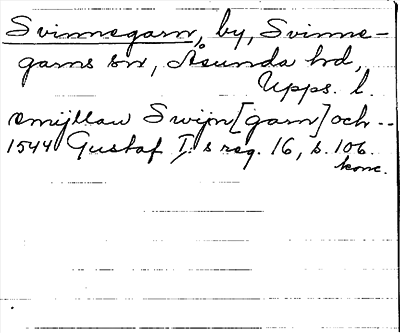 Svinnegarn, by, Svinne-
garns sn, Åsunda hd,
Upps. l.
emijllan Swijn[garn] och --
1544 Gustaf I:s reg. 16, s. 106.
konc.